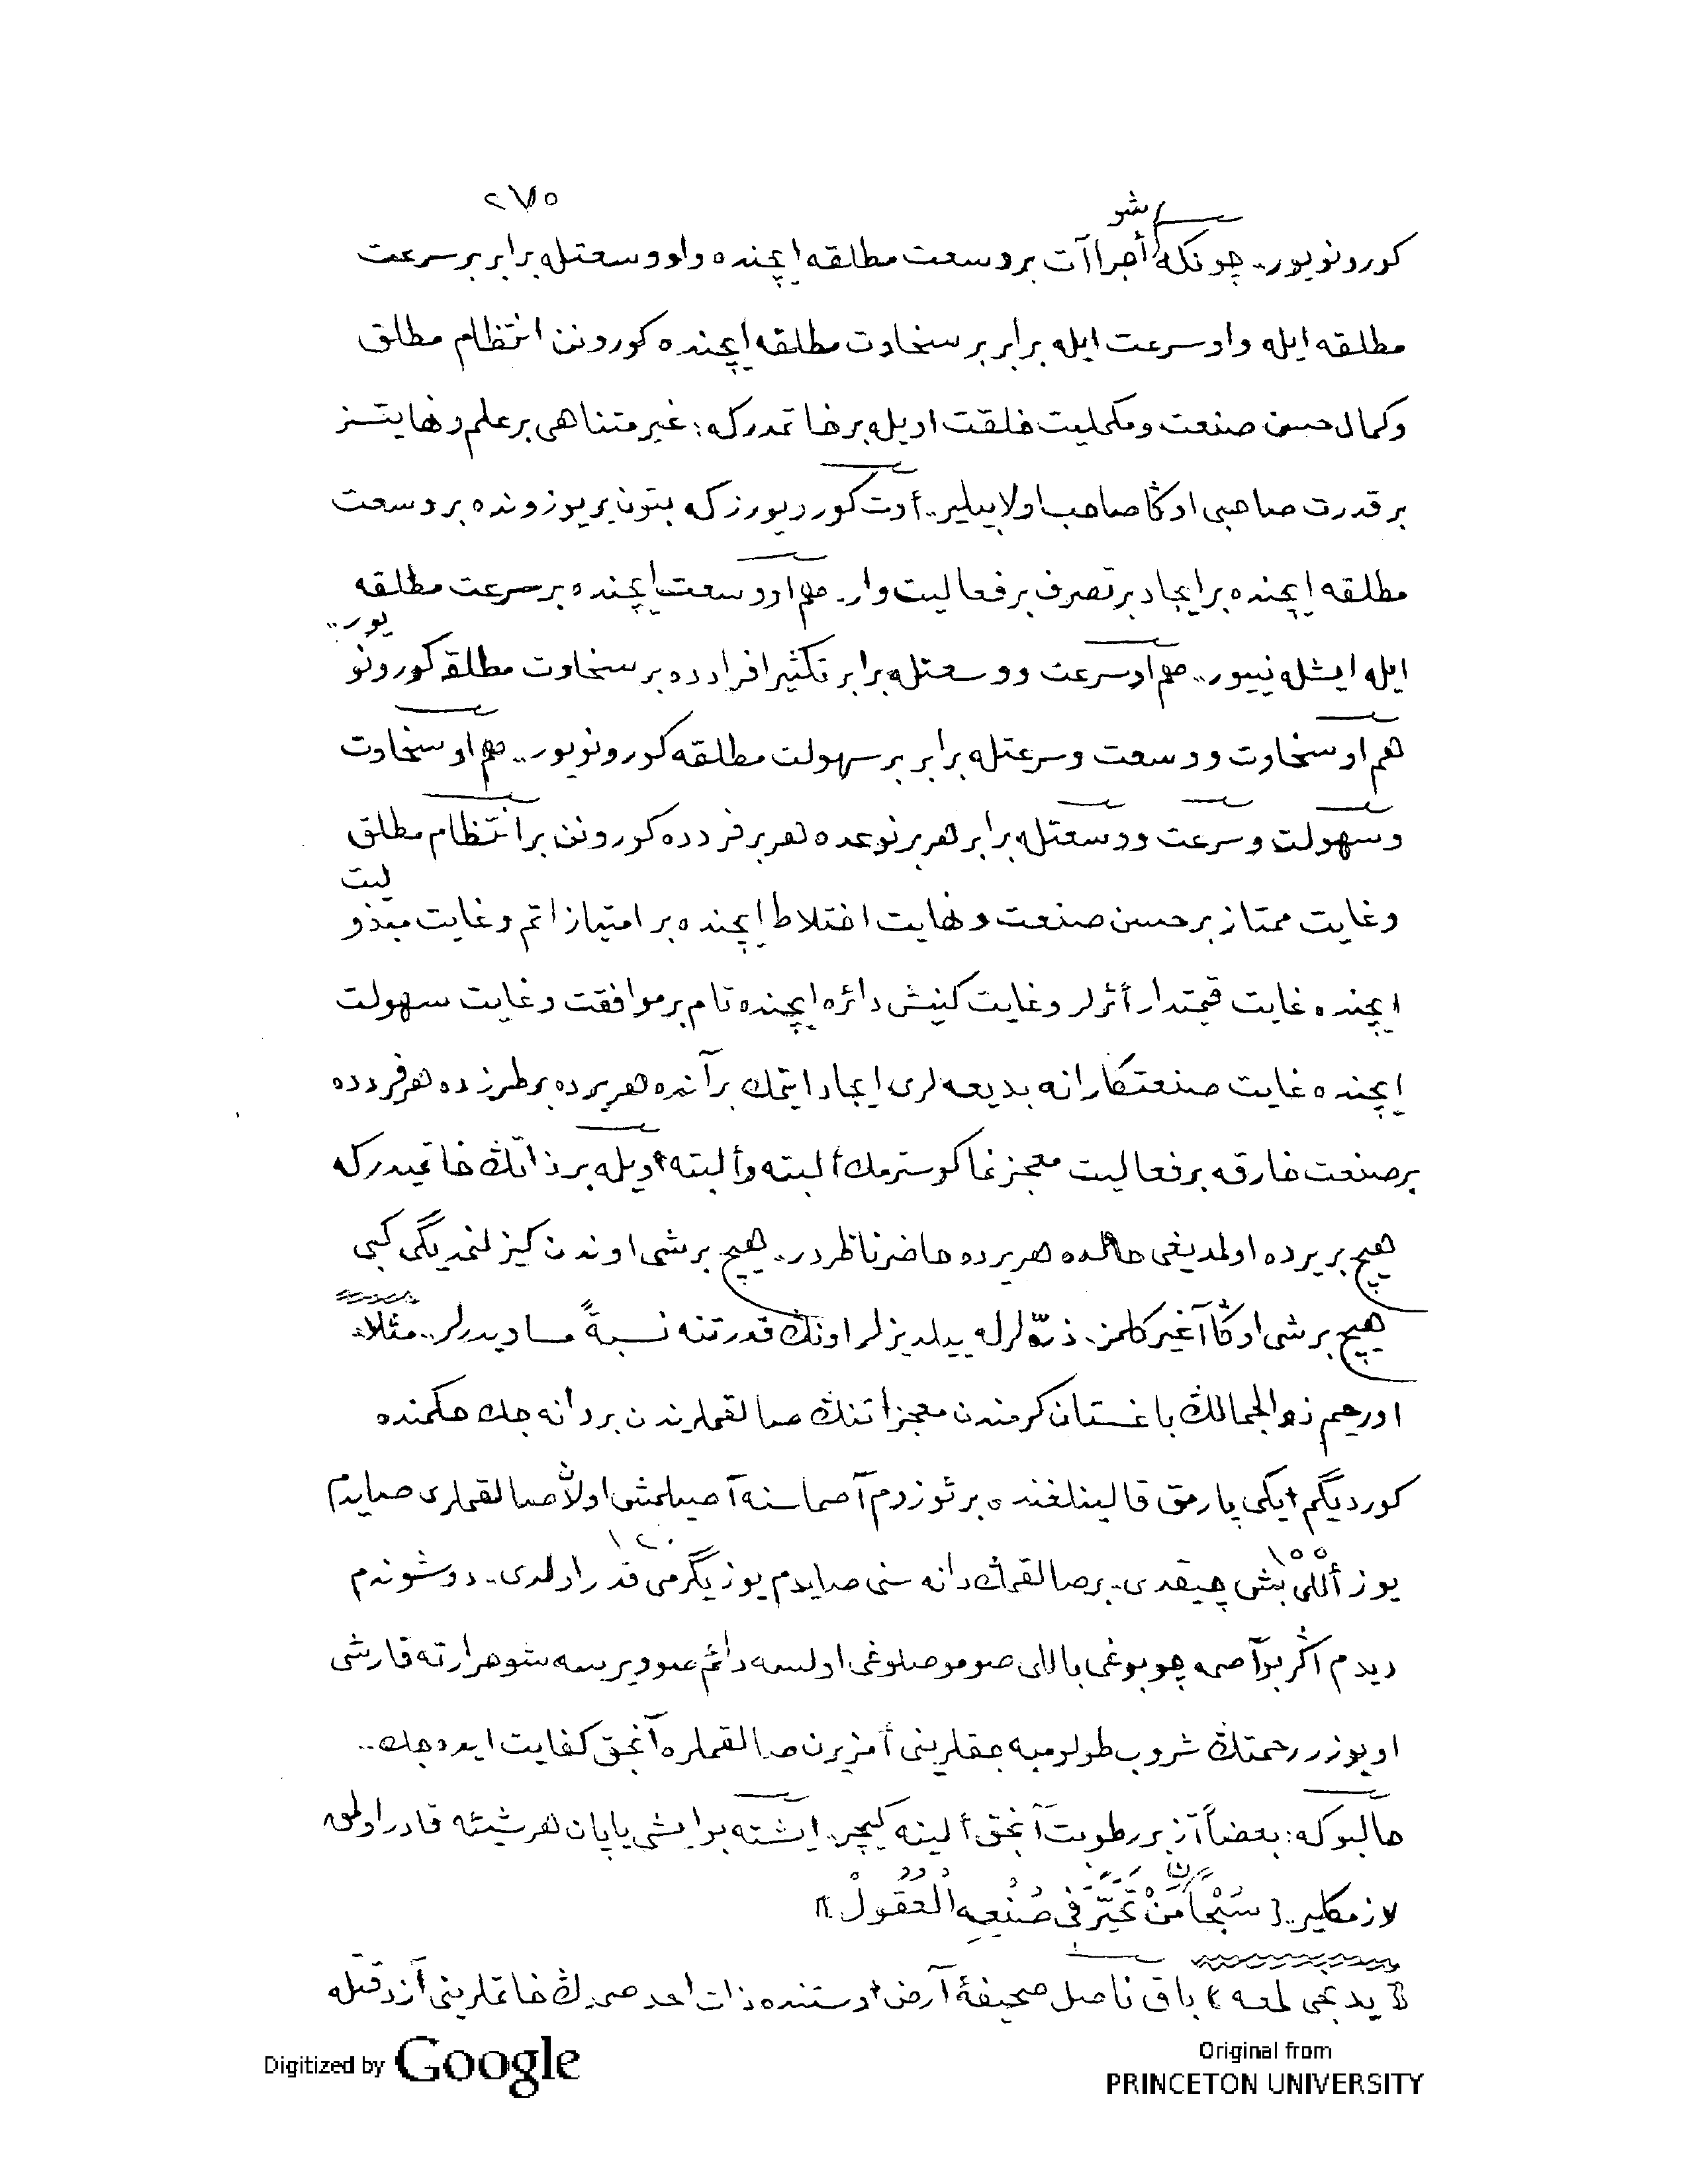 ٢٧٥
شو
كورونويور.. چونكه أجراآت بر وسعت مطلقه ايچنده واو وسعتله برابر بر سرعت
مطلقه ايله واو سرعت ايله برابر بر سخاوت مطلقه ايچنده كورونن انتظام مطلق
وكمال حسن صنعت ومكمليت خلقت اويله بر خاتمدركه: غير متناهى بر علم ونهايتسز
بر قدرت صاحبى اوڭا صاحب اولابيلير.. أوت كورويورز كه بتون ير يوزونده بر وسعت
مطلقه ايچنده بر ايجاد بر تصرف بر فعاليت وار. هم او وسعت ايچنده بر سرعت مطلقه
ايله ايشله نييور.. هم او سرعت ووسعتله برابر تكثير افرادده بر سخاوت مطلقه كورونو
يور..
هم او سخاوت ووسعت وسرعتله برابر بر سهولت مطلقه كورونويور.. هم او سخاوت
وسهولت وسرعت ووسعتله برابر هر بر نوعده هر بر فردده كورونن بر انتظام مطلق
وغايت ممتاز بر حسن صنعت ونهايت اختلاط ايچنده بر امتياز اتم وغايت مبذو
ليت
ايچنده غايت قيمتدار أثرلر وغايت كنيش دائره ايچنده تام بر موافقت وغايت سهولت
ايچنده غايت صنعتكارانه بديعه لرى ايجاد ايتمك بر آنده هر يرده بر طرزده هر فردده
بر صنعت خارقه بر فعاليت معجزنما كوسترمك ألبته وألبته اويله بر ذاتڭ خاتميدركه
هيچ بر يرده اولمديغى حالده هر يرده حاضر ناظردر.. هيچ بر شى اوندن كيزلنمديگى كبى
هيچ بر شى اوڭا آغير كلمز. ذرّه لرله ييلديزلر اونڭ قدرتنه نسبةً مساويدرلر.. مثلا:
او رحيم ذو الجمالڭ باغستان كرمندن معجزاتنڭ صالقملرندن بر دانه جك حكمنده
كورديگم ايكى پارمق قالينلغنده بر ئوزوم آصماسنه آصيلمش اولان صالقملرى صايدم
١٥٥ ١٢٠
يوز أللى بش چيقدى. بر صالقمڭ دانه سنى صايدم يوز يگرمى قدر اولدى.. دوشوندم
ديدم اگر بو آصمه چوبوغى باللى صو موصلوغى اولسه دائم صو ويرسه شو حرارته قارشى
او يوزر رحمتڭ شروب طولومبه جقلرينى أمزيرن صالقملره آنجق كفايت ايده جك..
حالبوكه: بعضاً آز بر رطوبت آنجق ألينه كيچر. ايشته بو ايشى ياپان هر شيئه قادر اولمق
لازمكلير.. { سُبْحَانَ مَنْ تَحَيَّرَ فِى صُنْعِهِ الْعُقُولُ }
{ يدنجى لمعه } باق ناصل صحيفۀ آرض اوستنده ذات احد صمدڭ خاتملرينى آز دقتله
Digitized by Google
Original from
PRINCETON UNIVERSITY